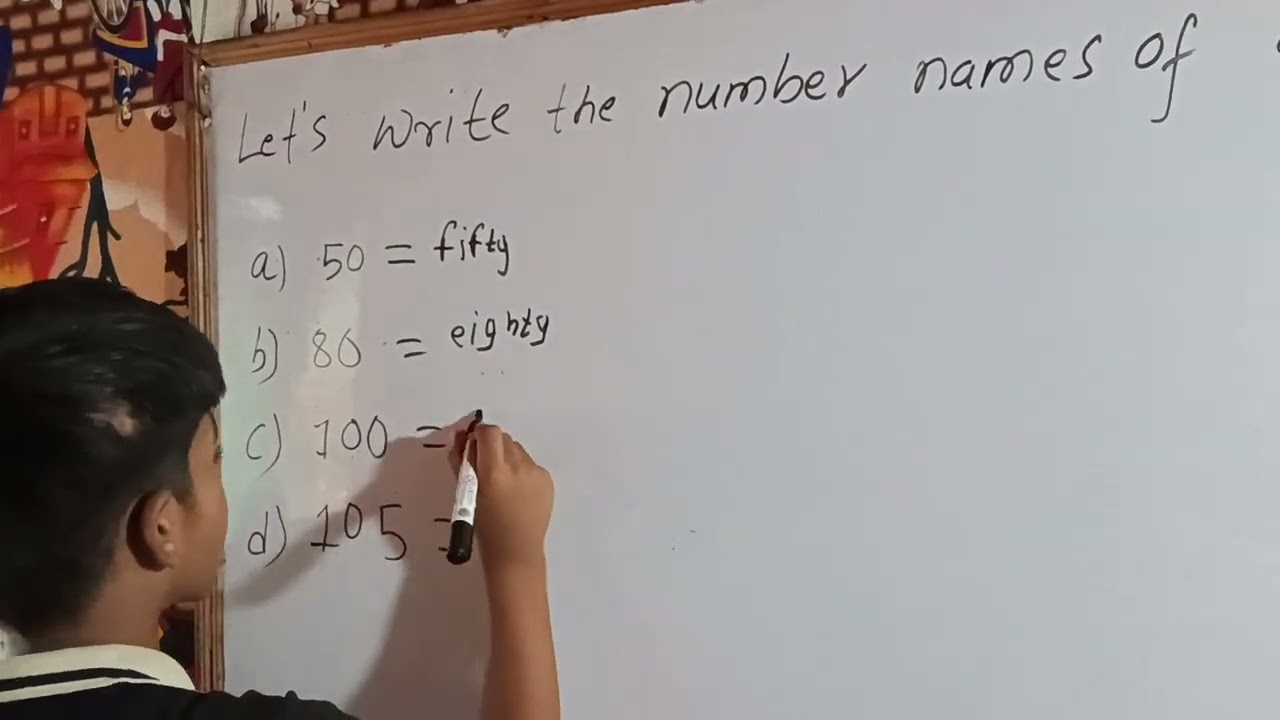 Let's Write the number names of
a) 50 = fifty
b) 80 = eighty
c) 100 =
d) 105 =